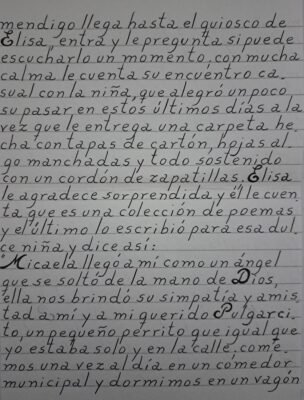 mendigo llega hasta el quiosco de
Elisa, entra y le pregunta si puede
escucharlo un momento, con mucha
calma le cuenta su encuentro ca_
sual con la niña, que alegró un poco
su pasar en estos últimos días a la
vez que le entrega una carpeta he_
cha con tapas de cartón, hojas al_
go manchadas y todo sostenido
con un cordón de zapatillas. Elisa
le agradece sorprendida y él le cuen_
ta que es una colección de poemas
y el último lo escribió para esa dul_
ce niña y dice así:
"Micaela llegó a mí como un ángel
que se soltó de la mano de Dios,
ella nos brindó su simpatía y amis_
tad a mí y a mi querido Pulgarci_
to, un pequeño perrito que igual que
yo estaba solo y en la calle, come_
mos una vez al día en un comedor
municipal y dormimos en un vagón